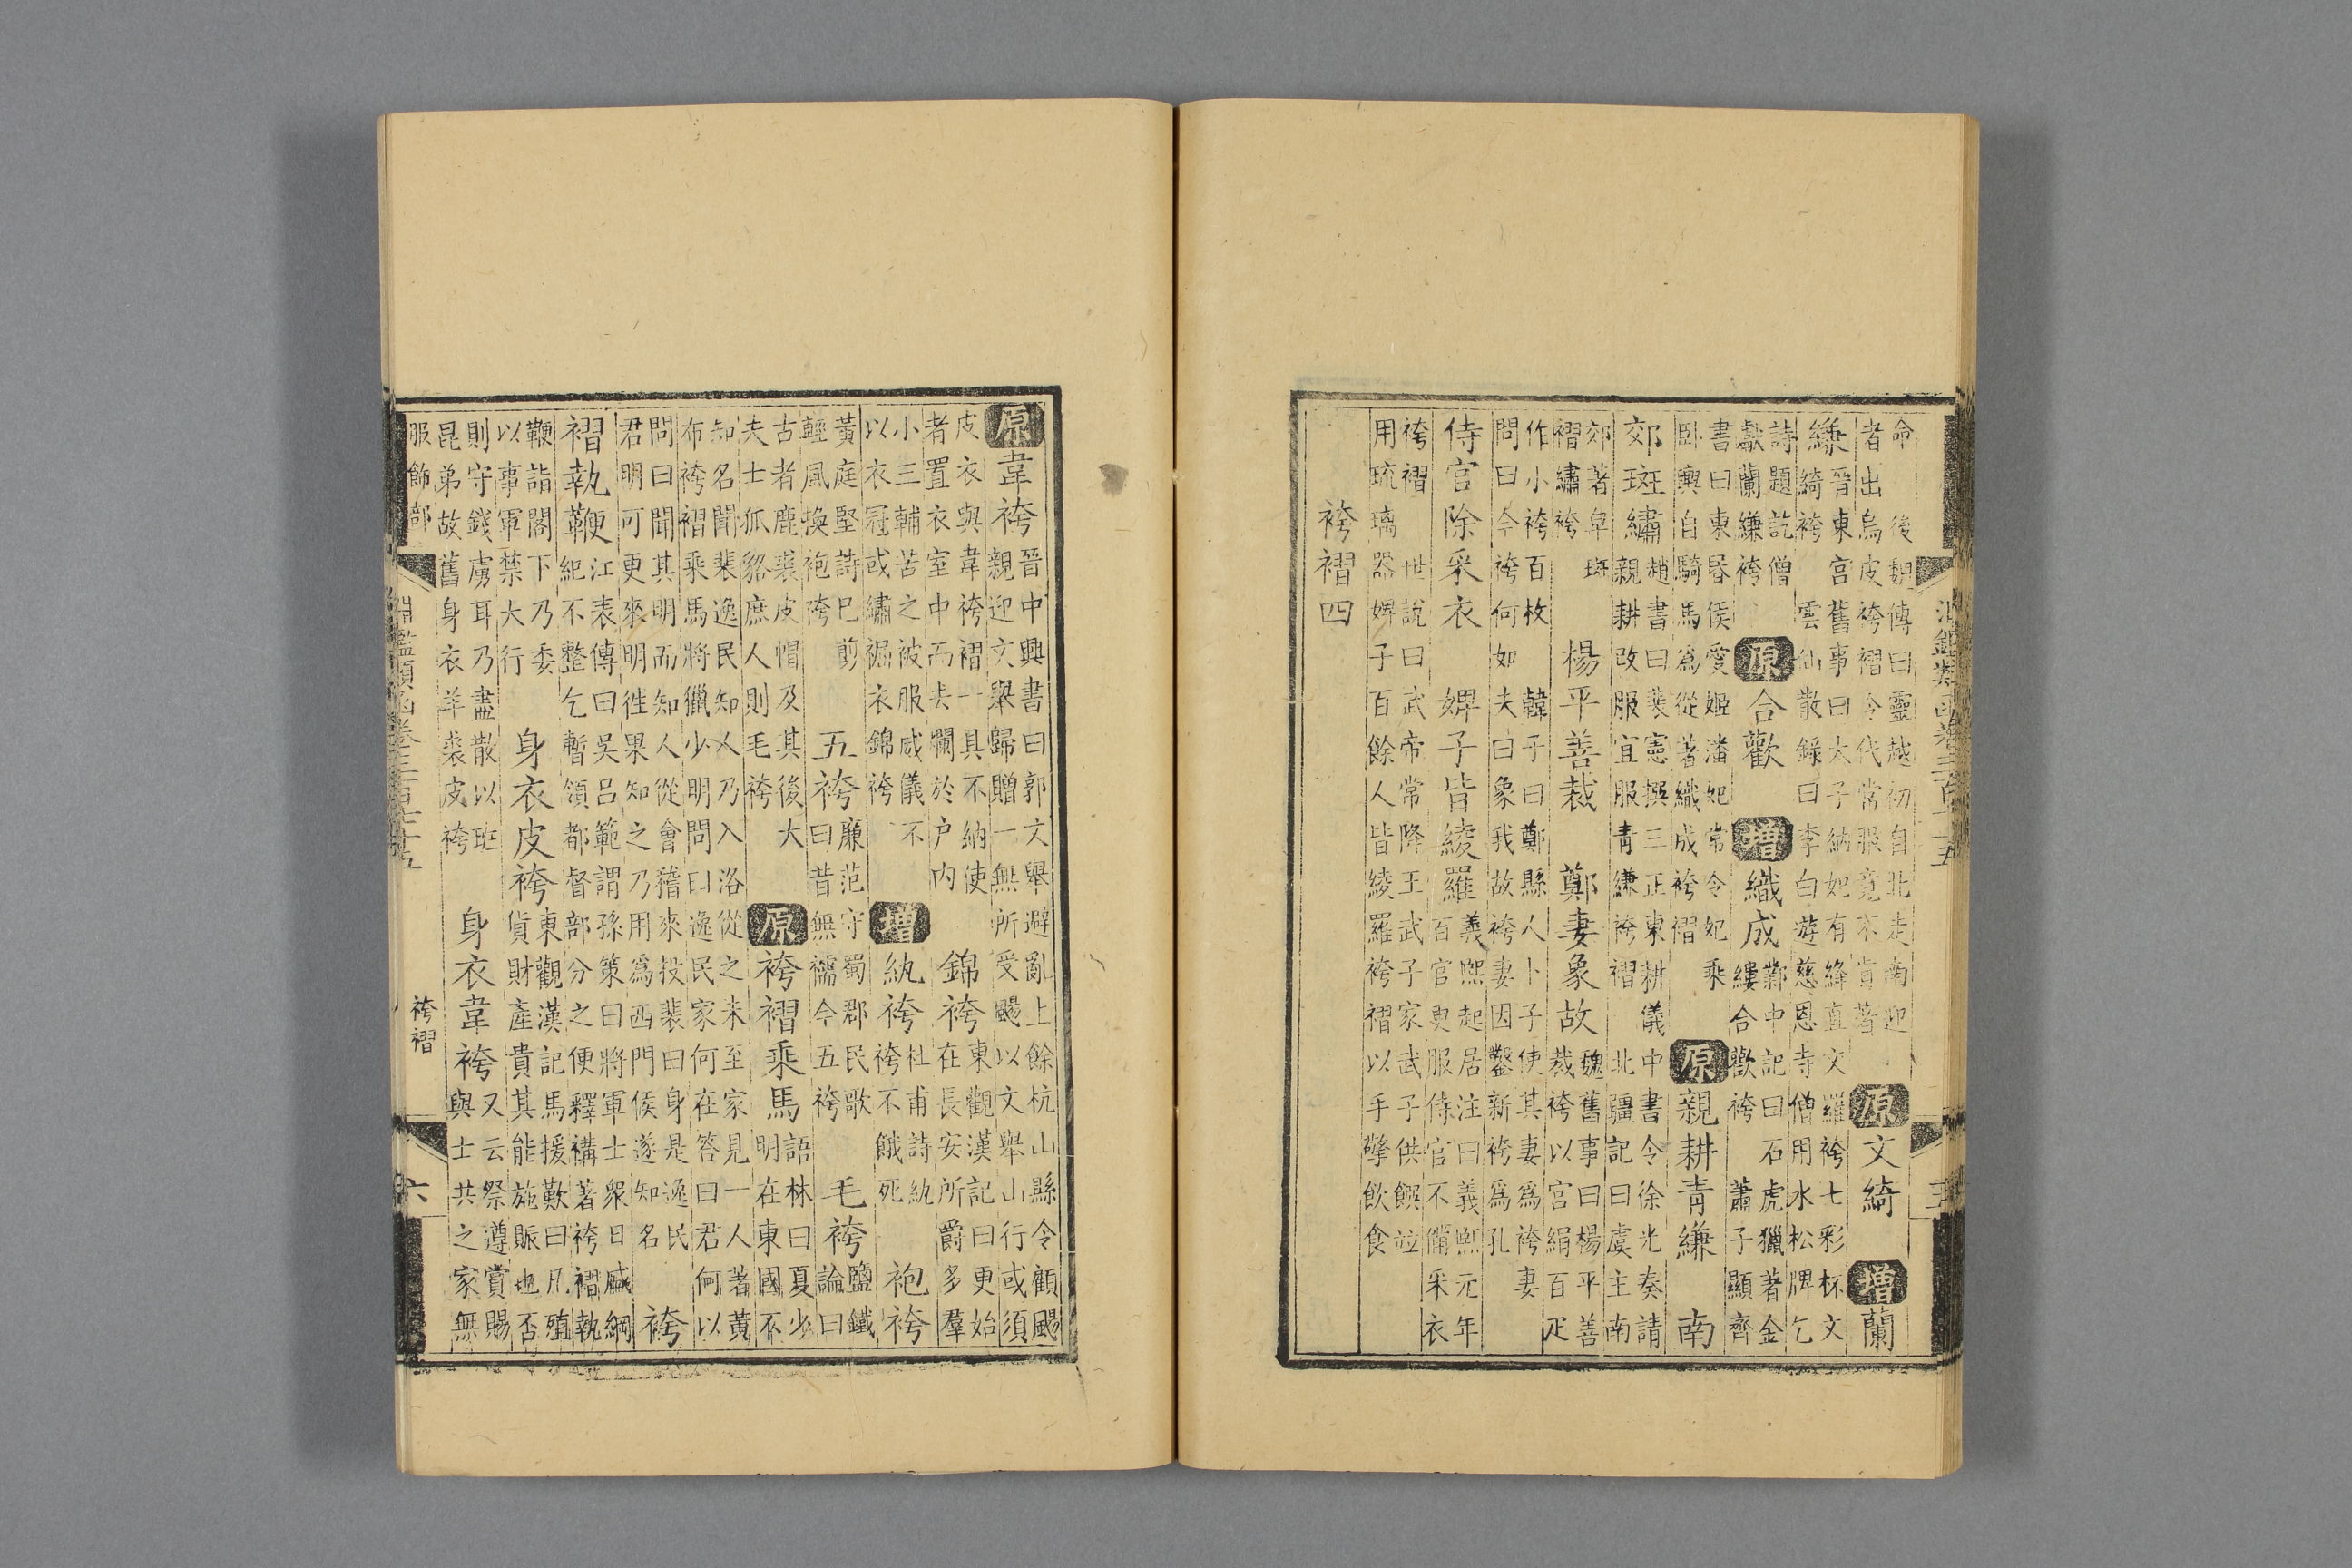 命 後魏傳曰靈越初自北走南迎
者出烏皮袴褶令代常服竟不肯著
原文綺 增蘭
縑
晉東宫舊事曰太子納妃有絳直文羅袴七彩杯文
綺袴 雲仙散錄曰李白遊慈恩寺僧用水松牌乞
詩題訖僧
獻蘭縑袴
原合歡 增織成
鄴中記曰石虎獵著金
縷合歡袴 蕭子顯齊
書曰東昏侯愛姬潘妃常令妃乘
臥輿自騎馬為從著織成袴褶
原親耕青縑 南
郊斑繡
趙書曰裴憲撰三正東耕儀中書令徐光奏請
親耕改服宜服青縑袴褶 北疆記曰虞主南
郊著皁斑
褶繡袴
楊平善裁 鄭妻象故
魏舊事曰楊平善
裁袴以宮絹百疋
作小袴百枚 韓子曰鄭縣人卜子使其妻為袴妻
問曰今袴何如夫曰象我故袴妻因鑿新袴為孔
侍官除采衣 婢子皆綾羅
義熙起居注曰義熙元年
百官更服侍官不備采衣
袴褶 世說曰武帝常降王武子家武子供饌竝
用琉璃器婢子百餘人皆綾羅袴褶以手擎飲食
袴褶四
原韋袴
晉中興書曰郭文舉避亂上餘杭山縣令顧颺
親迎文舉歸贈一無所受颺以文舉山行或須
皮衣與韋袴褶一具不納使
者置衣室中而去爛於户内
錦袴
東觀漢記曰更始
在長安所爵多羣
小三輔苦之被服威儀不
以衣冠或繡裾衣錦袴
增紈袴
杜甫詩紈
袴不餓死
袍袴
黃庭堅詩巴剪
輕風換袍胯
五袴
廉范守蜀郡民歌
曰昔無襦今五袴
毛袴
鹽鐵
論曰
古者鹿裘皮帽及其後大
夫士狐貉庶人則毛袴
原袴褶乘馬
語林曰夏少
明在東國不
知名聞裴逸民知人乃入洛從之未至家見一人著黃
布袴褶乘馬將獵少明問曰逸民家何在答曰君何以
問曰聞其明而知人從會稽來投裴曰身是逸民
君明可更來明徃果知之乃用為西門侯遂知名
袴
褶執鞭
江表傳曰吳呂範謂孫策曰將軍士衆日盛綱
紀不整乞暫領都督部分之便釋褠著袴褶執
鞭詣閣下乃委
以事軍禁大行
身衣皮袴
東觀漢記馬援歎曰凡殖
貨財產貴其能施賑也否
則守錢虜耳乃盡散以班
昆弟故舊身衣羊裘皮袴
身衣韋袴
又云祭遵賞賜
與士共之家無
服飾部
淵鑑類函卷三百七十五
袴褶
六